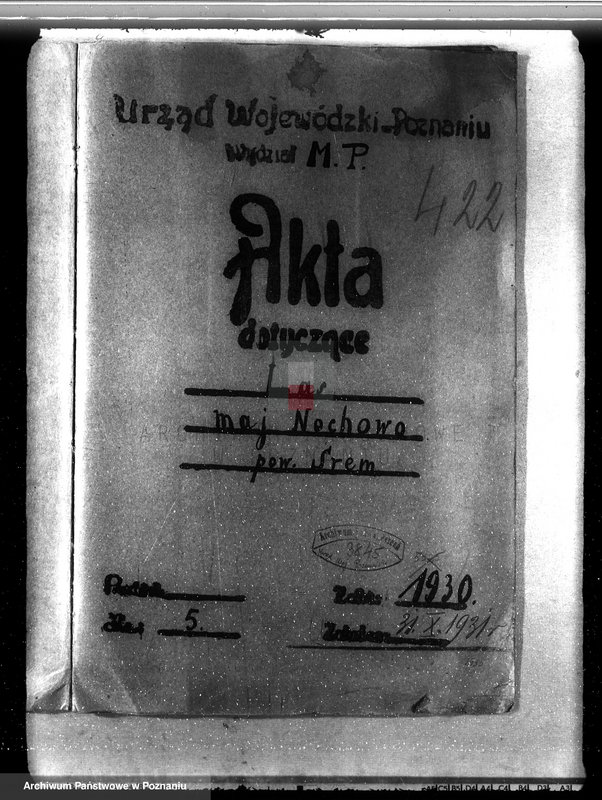 Urząd Wojewódzki-Poznaniu
Wydział M.P.
422
Akta
dotyczące
Las
maj Nochowo
pow. Śrem
3845
1930.
5.
31.X.1931r
Archiwum Państwowe w Poznaniu